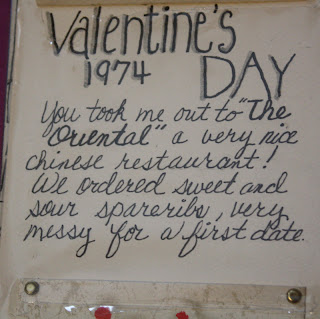 Valentine's
1974 DAY
You took me out to "The
Oriental" a very nice
chinese restaurant!
We ordered sweet and
sour spareribs, very
messy for a first date.